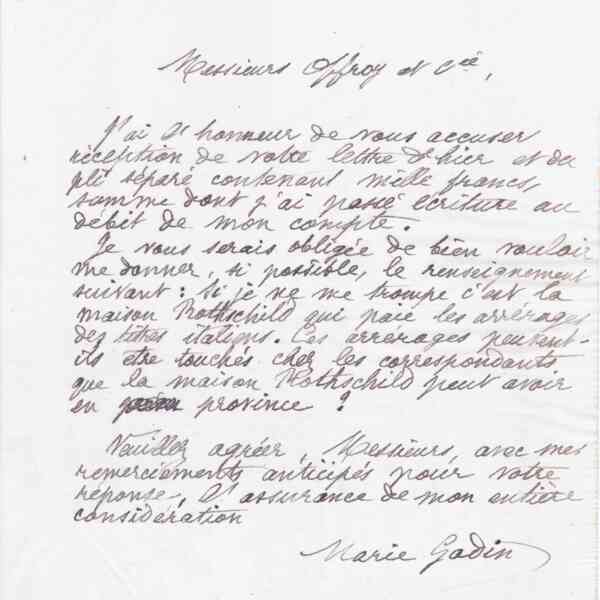 Messieurs Offroy et Cie,
J'ai l'honneur de vous accuser
réception de votre lettre d'hier et du
pli séparé contenant mille francs,
somme dont j'ai passé écriture au
débit de mon compte.
Je vous serais obligée de bien vouloir
me donner, si possible, le renseignement
suivant : Si je ne me trompe c'est la
maison Rothschild qui paie les arrérages
des titres italiens. Ces arrérages peuvent-
ils être touchés chez les correspondants
que la maison Rothschild peut avoir
en province ?
Veuillez agréer, Messieurs, avec mes
remerciements anticipés pour votre
réponse, l'assurance de mon entière
considération
Marie Godin